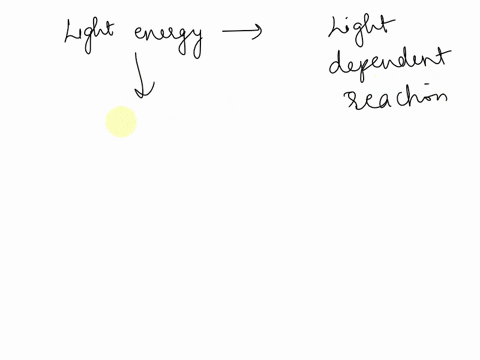 Light energy → Light
dependent
reaction